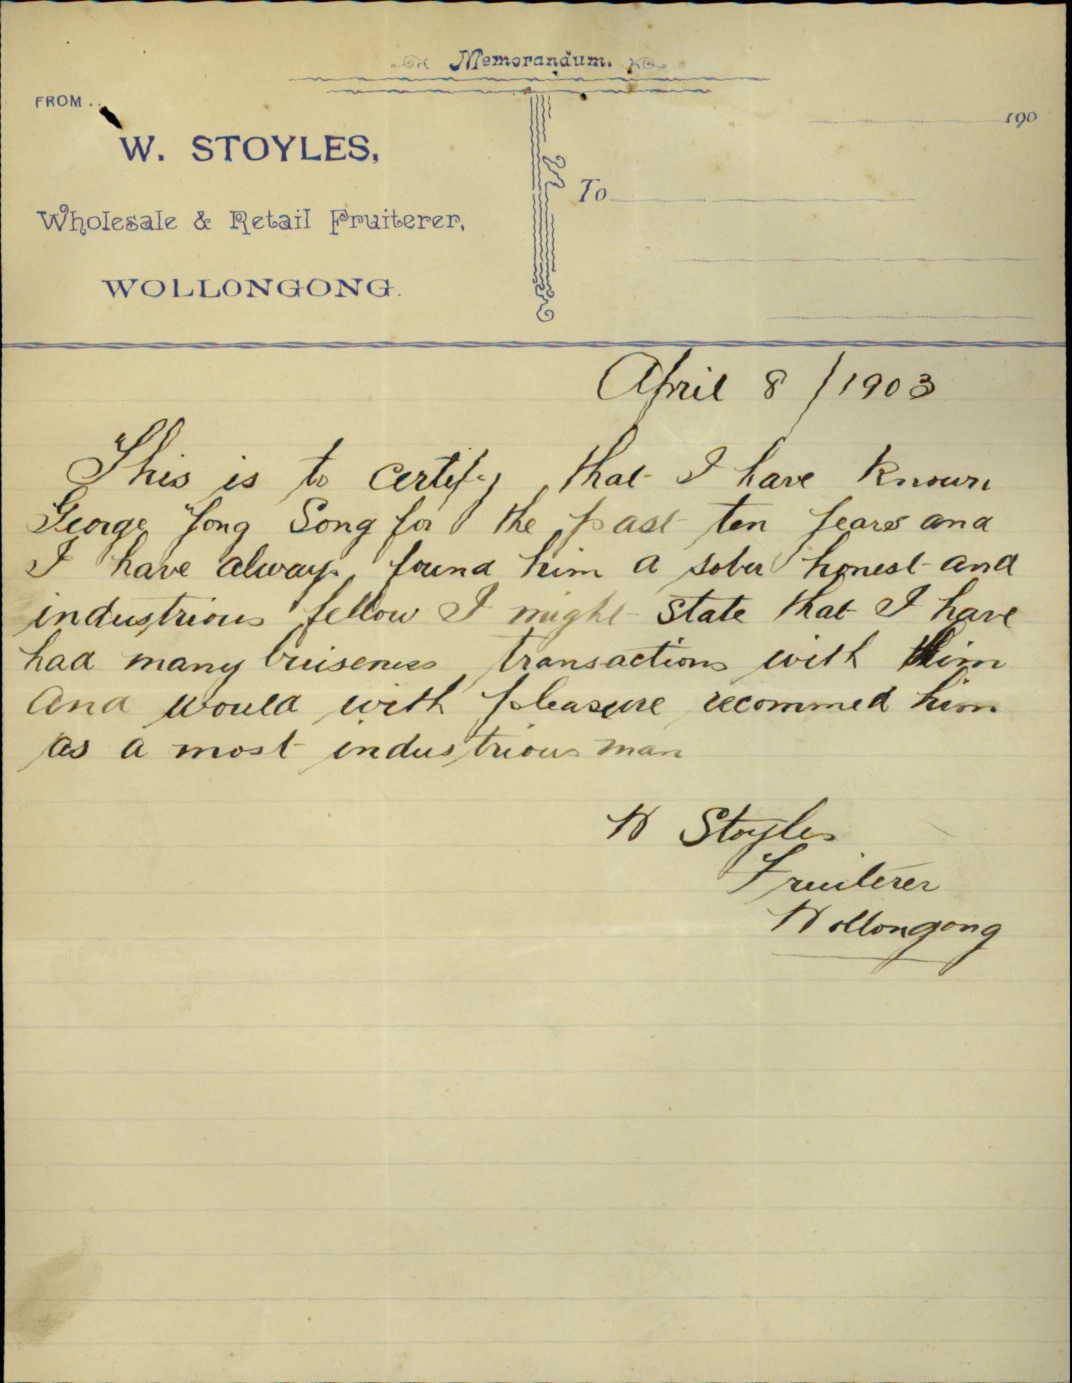 Memorandum.
FROM ..
W. STOYLES,
Wholesale & Retail Fruiterer,
WOLLONGONG.
190
To
April 8 / 1903
This is to certify that I have known
George Yong Song for the past ten years and
I have always found him a sober honest and
industrious fellow I might state that I have
had many buiseness transactions with him
and would with pleasure recommed him
as a most industrious man
W Stoyles
Fruiterer
Wollongong